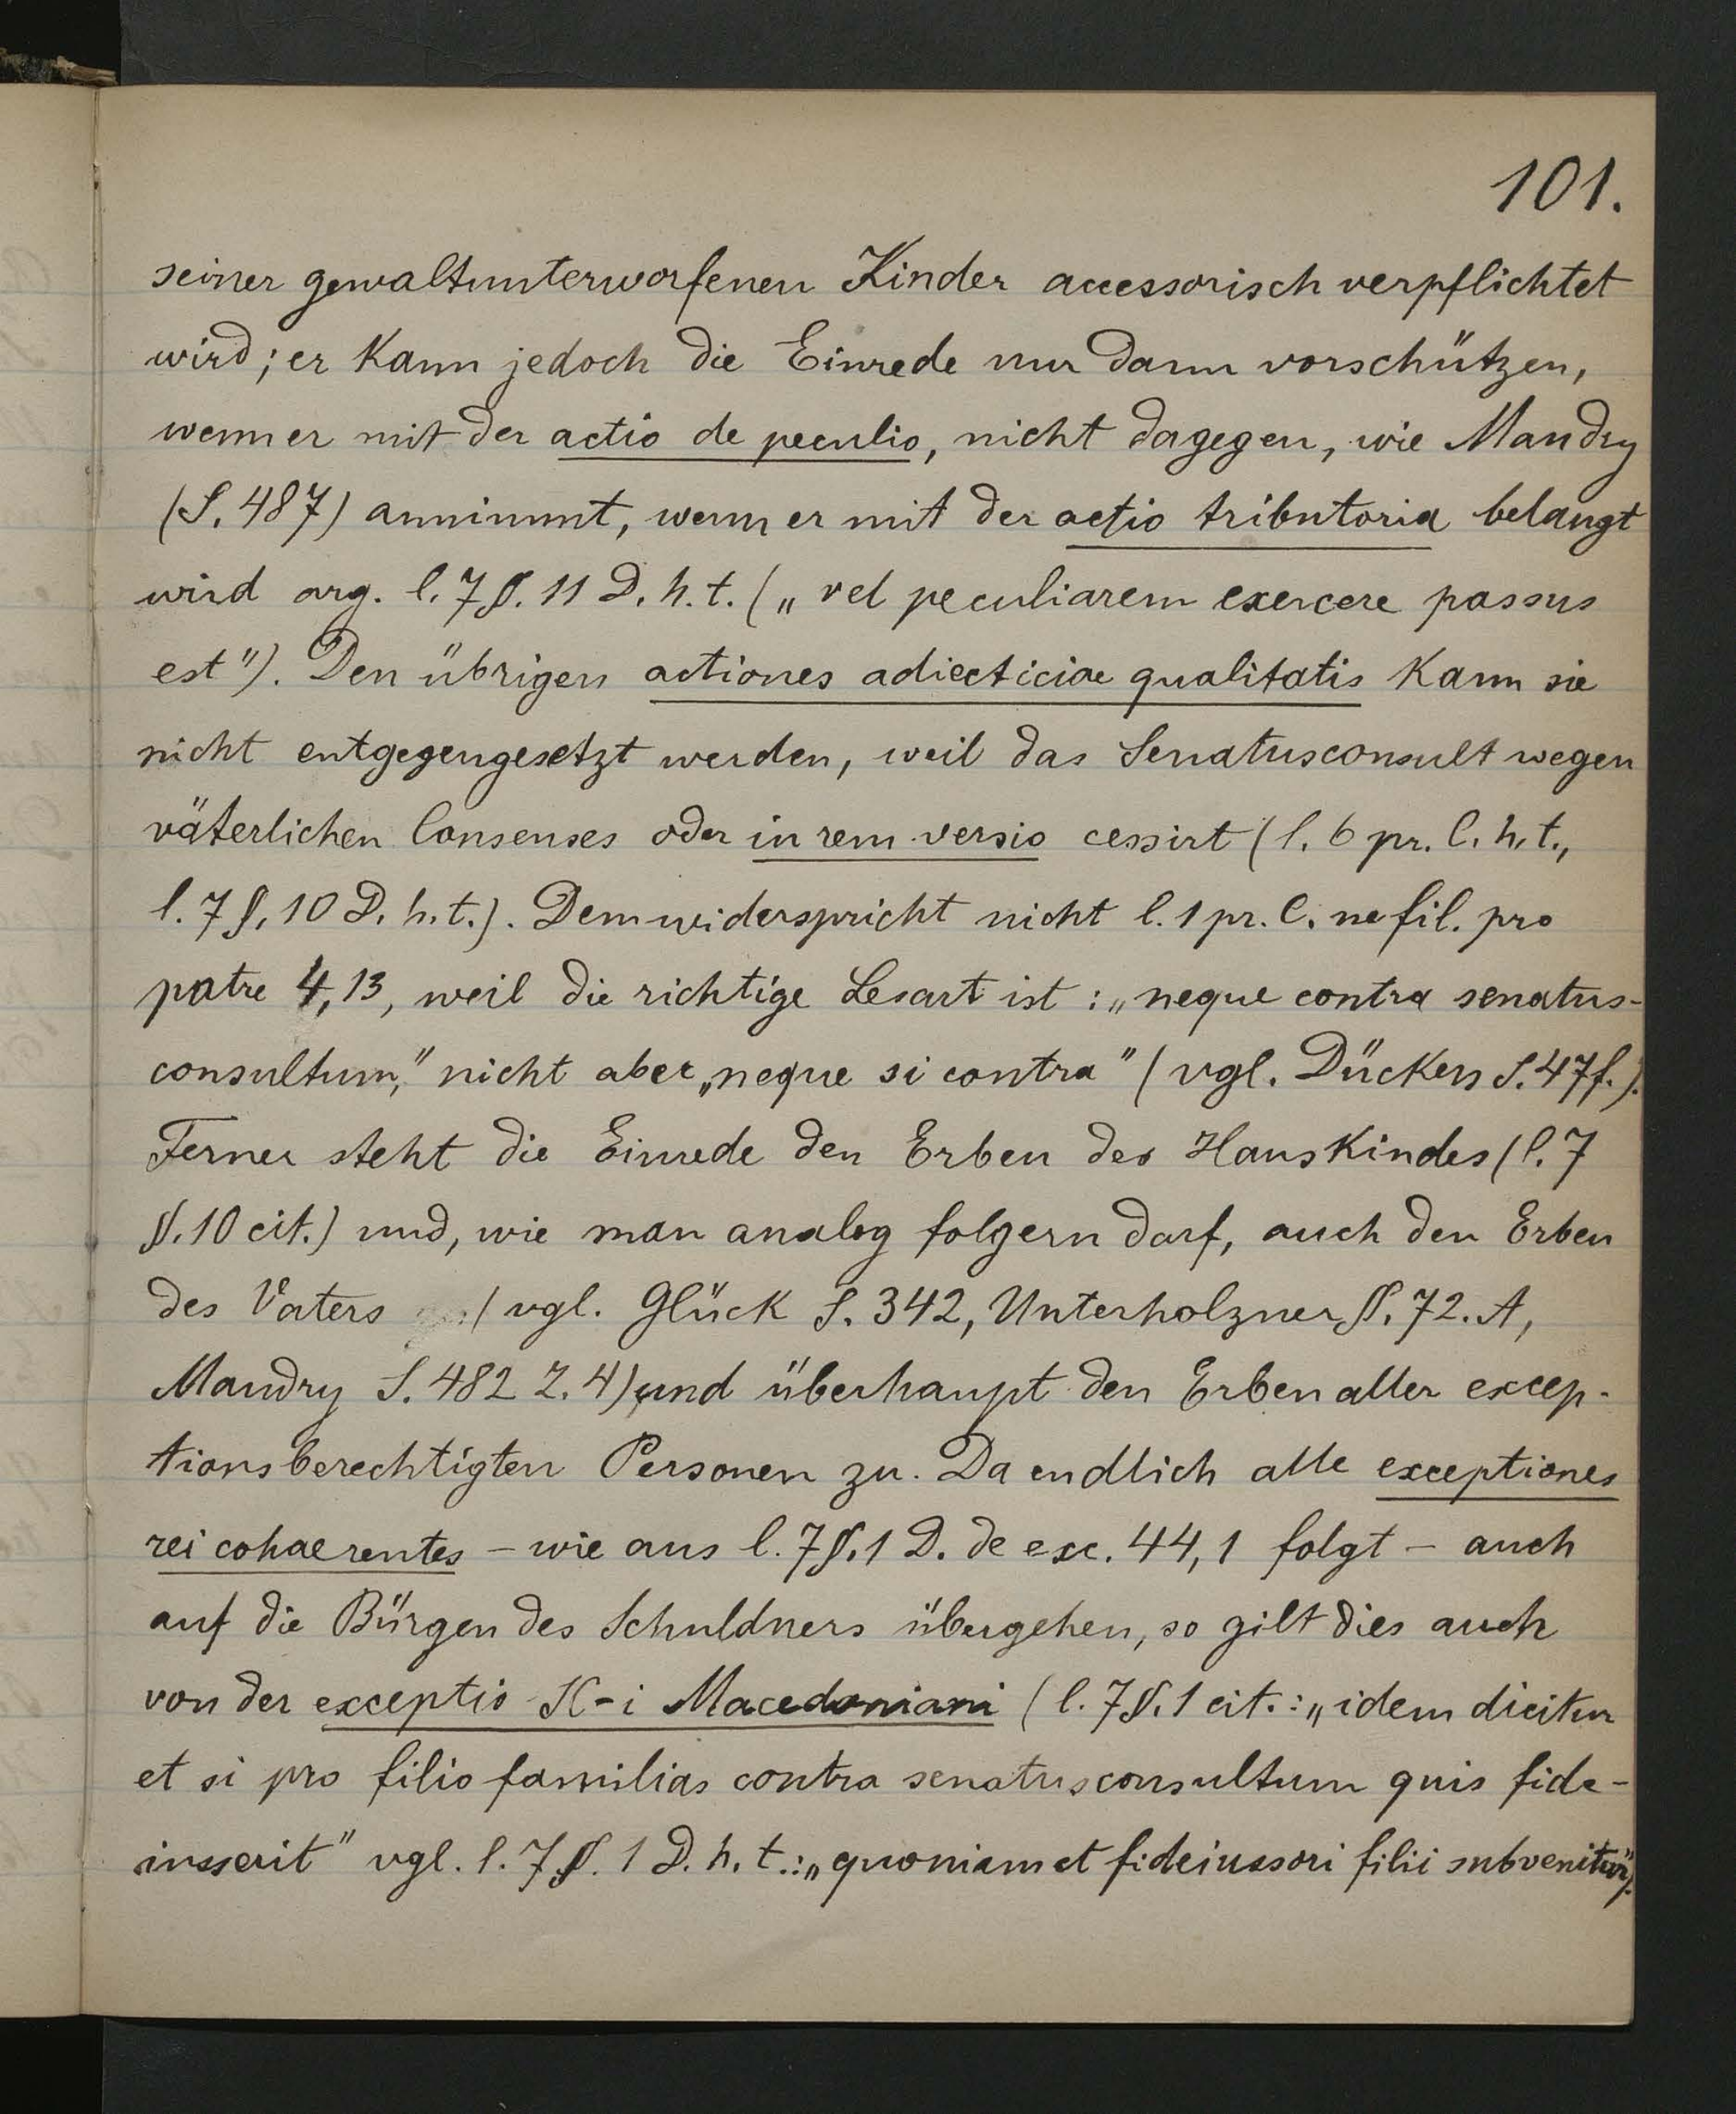 101.
seiner gewaltunterworfenen Kinder accessorisch verpflichtet
wird; er kann jedoch die Einrede nur dann vorschützen,
wenn er mit der actio de peculio, nicht dagegen, wie Mandry
(S. 487) annimmt, wenn er mit der actio tributoria belangt
wird arg. l. 7 §. 11 D. h. t. („vel peculiarem exercere passus
est"). Den übrigen actiones adiecticiae qualitatis kann sie
nicht entgegengesetzt werden, weil das Senatusconsult wegen
väterlichen Consenses oder in rem versio cessirt (l. 6 pr. C. h. t.,
l. 7 §. 10 D. h. t.). Dem widerspricht nicht l. 1 pr. C. ne fil. pro
patre 4,13, weil die richtige Lesart ist: „neque contra senatus-
consultum," nicht aber „neque si contra" (vgl. Dückers S. 47 f.).
Ferner steht die Einrede den Erben des Hauskindes (l. 7
§. 10 cit.) und, wie man analog folgern darf, auch den Erben
des Vaters (vgl. Glück S. 342, Unterholzner §. 72. A,
Mandry S. 482 Z. 4) und überhaupt den Erben aller excep-
tionsberechtigten Personen zu. Da endlich alle exceptiones
rei cohaerentes – wie aus l. 7 §. 1 D. de exc. 44,1 folgt – auch
auf die Bürgen des Schuldners übergehen, so gilt dies auch
von der exceptio SC-i Macedoniani (l. 7 §. 1 cit.: „idem dicitur
et si pro filio familias contra senatusconsultum quis fide-
iusserit" vgl. l. 7 §. 1 D. h. t.: „quoniam et fideiussori filii subvenitur").